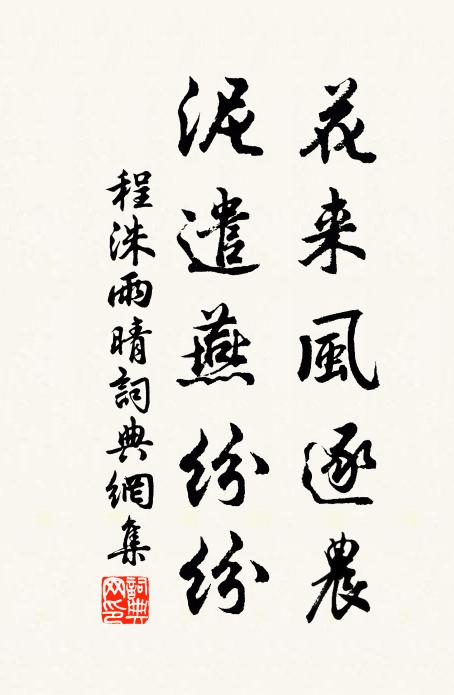 花来風逐農
泥遣燕紛紛
程洙雨晴詞典網集
詞典網印